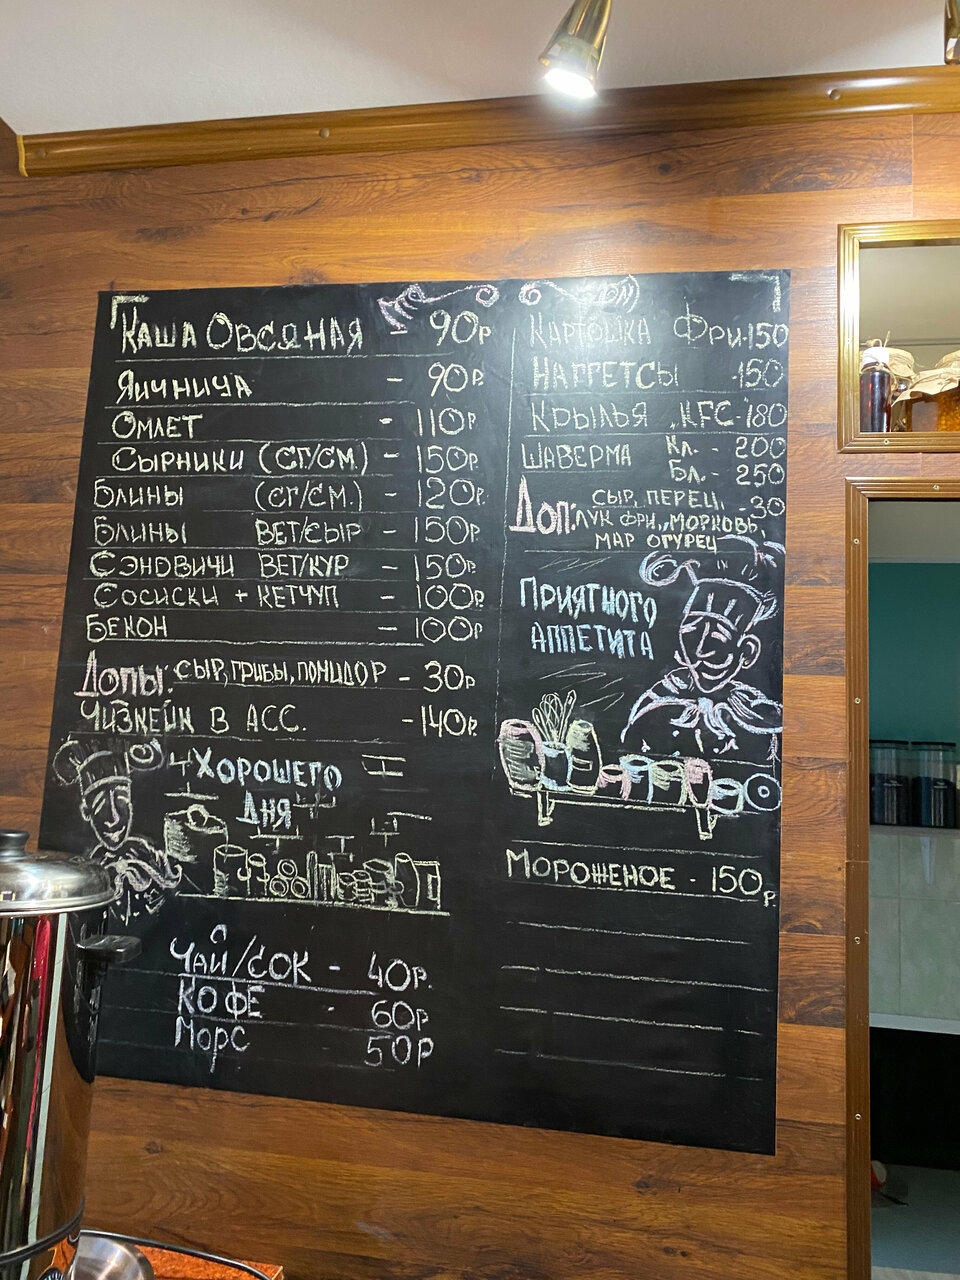 Каша Овсяная - 90р
Яичница - 90р
Омлет - 110р
Сырники (сг/см.) - 150р
Блины (сг/см.) - 120р.
Блины вет/сыр - 150р
Сэндвичи вет/кур - 150р
Сосиски + кетчуп - 100р
Бекон - 100р
Допы: сыр, грибы, помидор - 30р
Чизкейк в асс. - 140р
Хорошего
Дня
Чай/сок - 40р.
Кофе - 60р
Морс 50р
Картошка Фри-150
Наггетсы -150
Крылья „KFC-180
Шаверма Кл. - 200
Бл. - 250
Доп: сыр, перец, -30
лук фри, морковь,
мар огурец
Приятного
аппетита
Мороженое - 150р